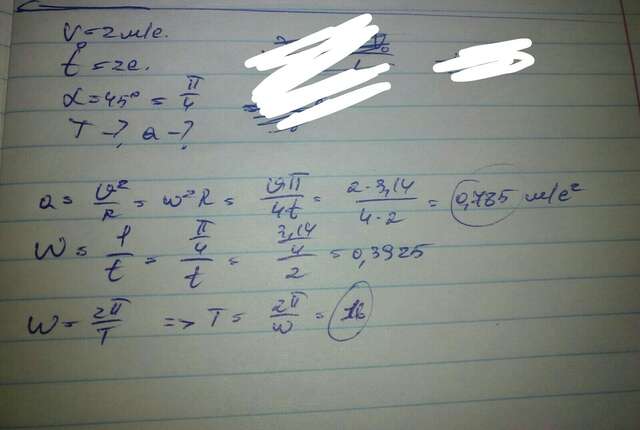 v = 2 м/с.
t = 2с.
α = 45° = π/4
T - ? a - ?
a = υ²/R = ω²R = υπ/4t = 2·3,14/4·2 = 0,785 м/с²
W = φ/t = π/4/t = 3,14/4/2 = 0,3925
W = 2π/T => T = 2π/ω = 16